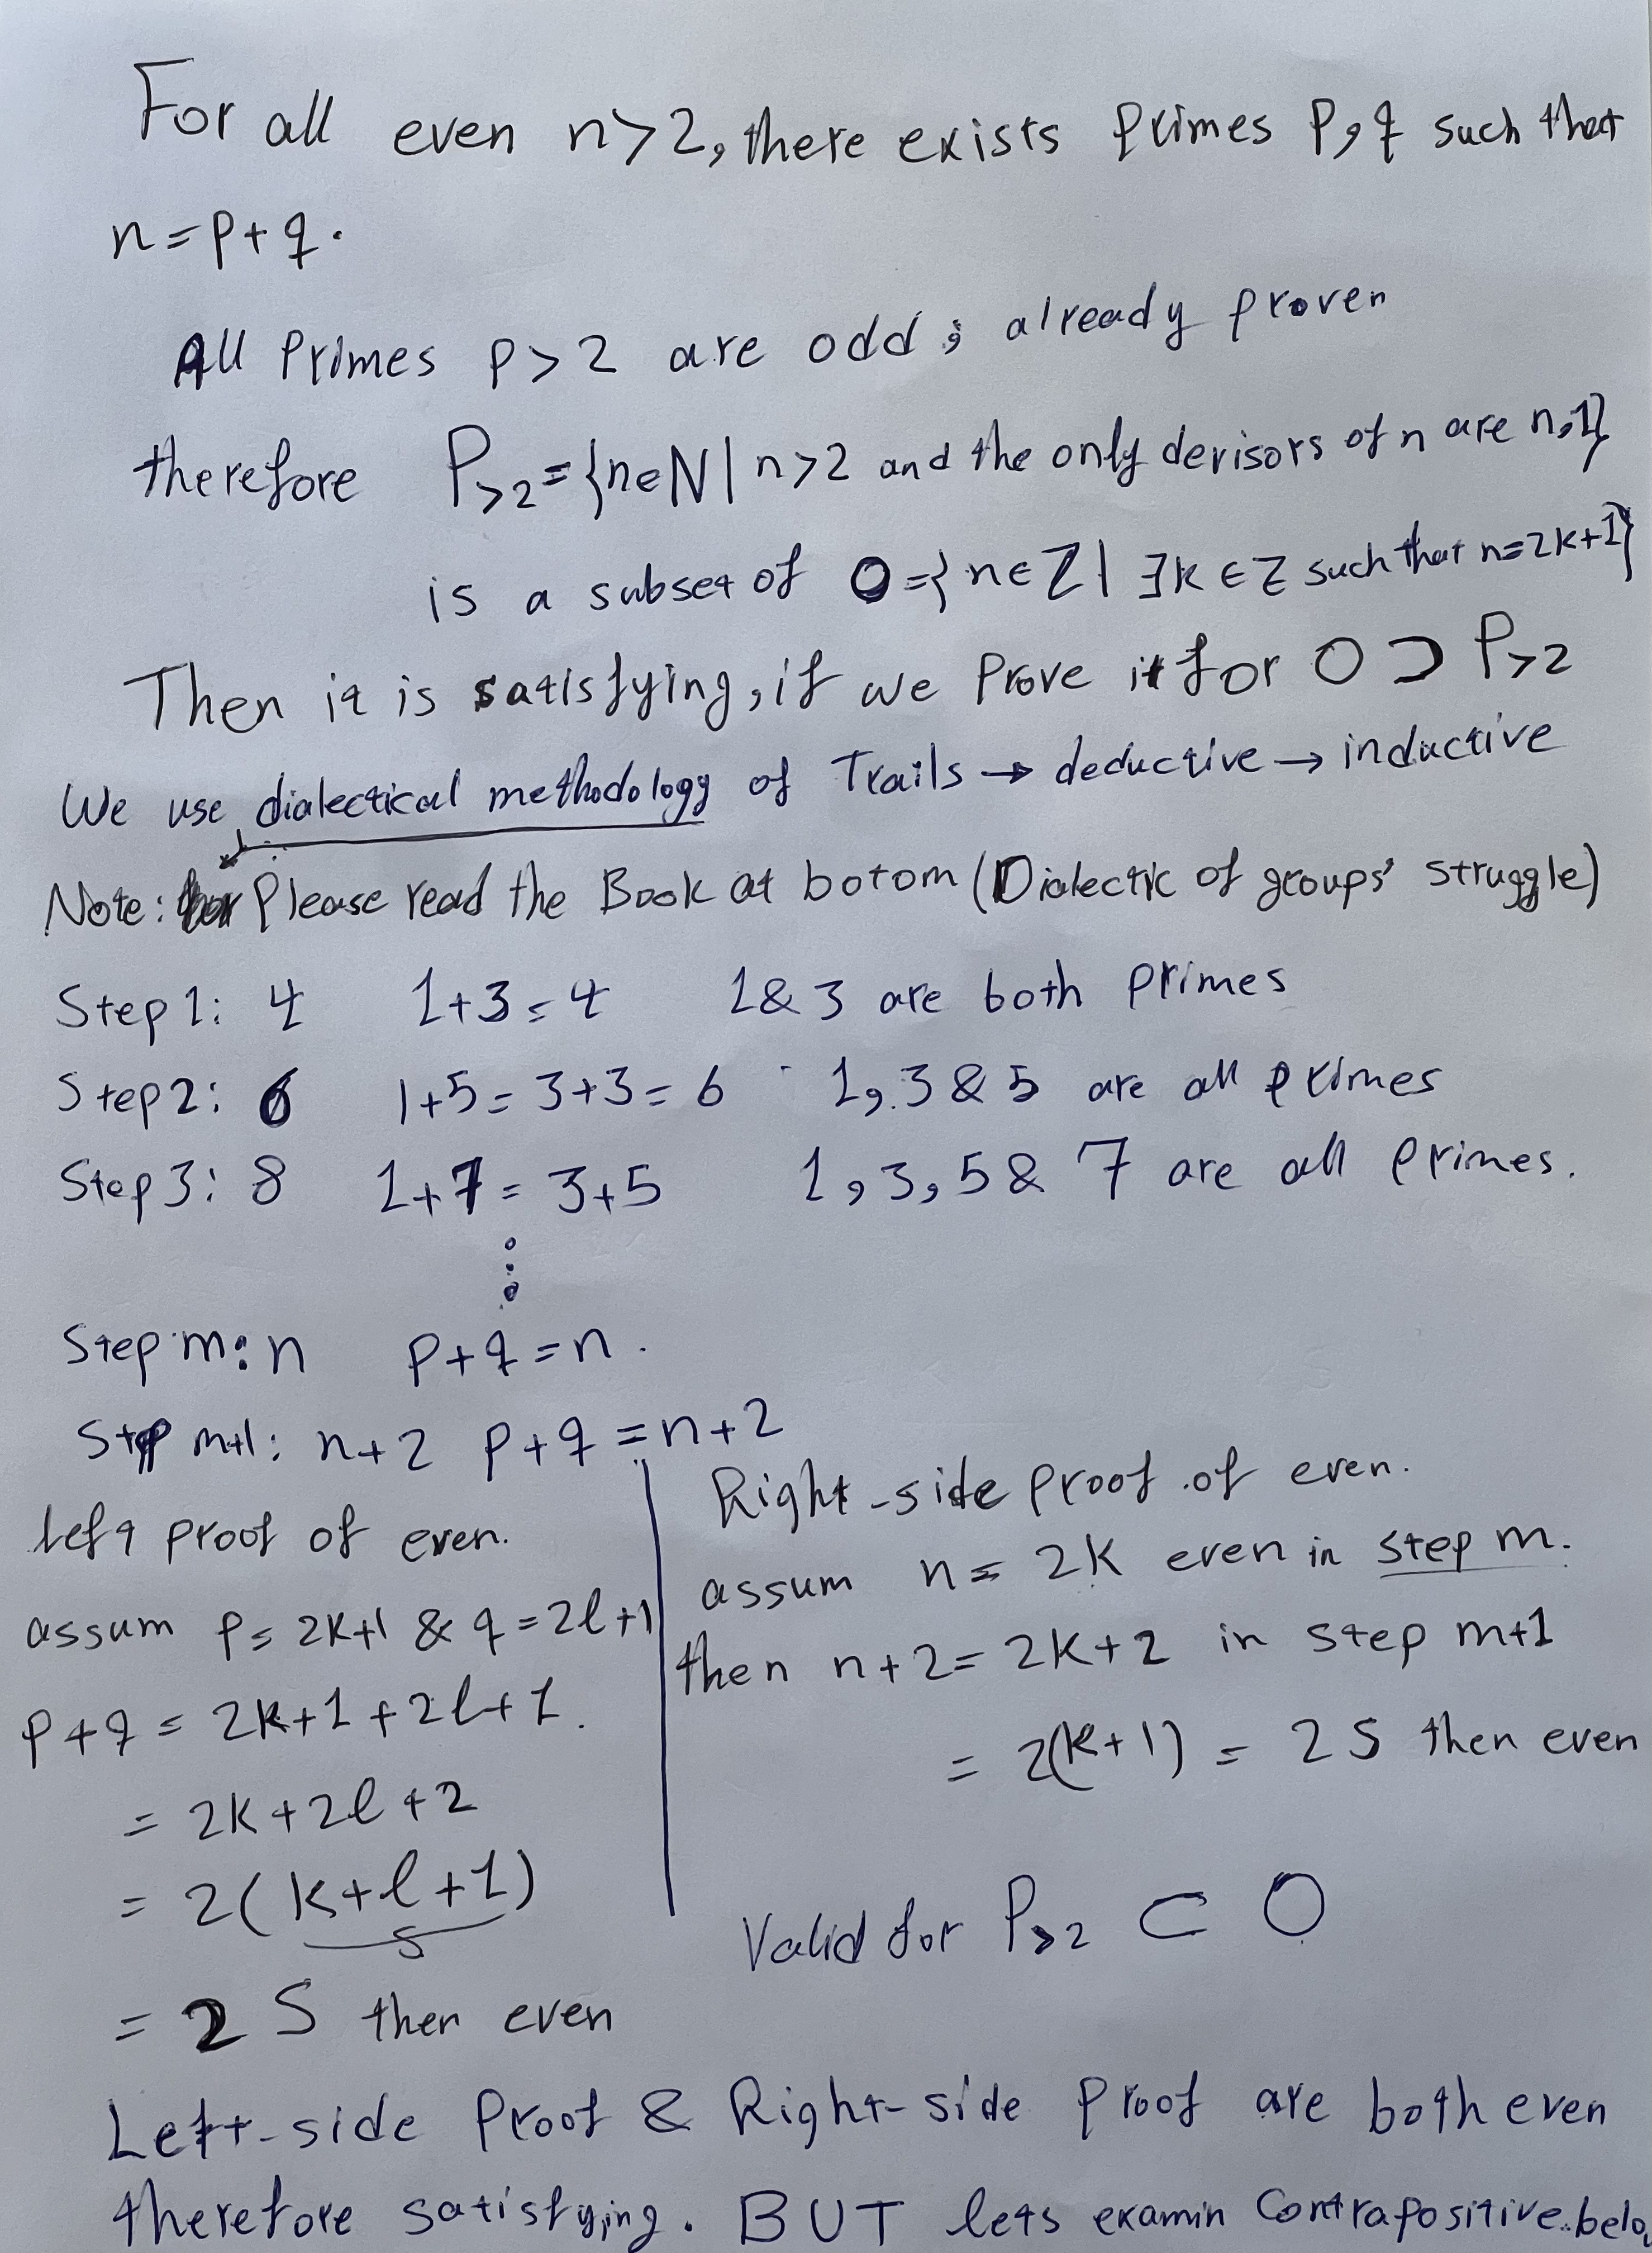 For all even n>2, there exists primes p, q such that
n=p+q.
All Primes p>2 are odd; already proven
therefore P>2={n∈N | n>2 and the only devisors of n are n,1}
is a subset of O={n∈Z | ∃k∈Z such that n=2k+1}
Then it is satisfying, if we Prove it for O ⊃ P>2
We use dialectical methodology of Trails → deductive → inductive
Note: Please read the Book at botom (Dialectic of groups' struggle)
Step 1: 4 1+3=4 1&3 are both primes
Step 2: 6 1+5=3+3=6 1,3&5 are all primes
Step 3: 8 1+7=3+5 1,3,5& 7 are all primes.
⋮
Step m: n p+q=n.
Step m+1: n+2 p+q=n+2
left proof of even.
assum p=2k+1 & q=2l+1
p+q=2k+1+2l+1.
=2k+2l+2
=2(k+l+1)
S
=2S then even
Right-side proof of even.
assum n=2k even in step m.
then n+2=2k+2 in step m+1
=2(k+1)=2S then even
Valid for P>2 ⊂ O
Left-side Proof & Right-side Proof are both even
therefore satisfying. BUT lets examin Contrapositive